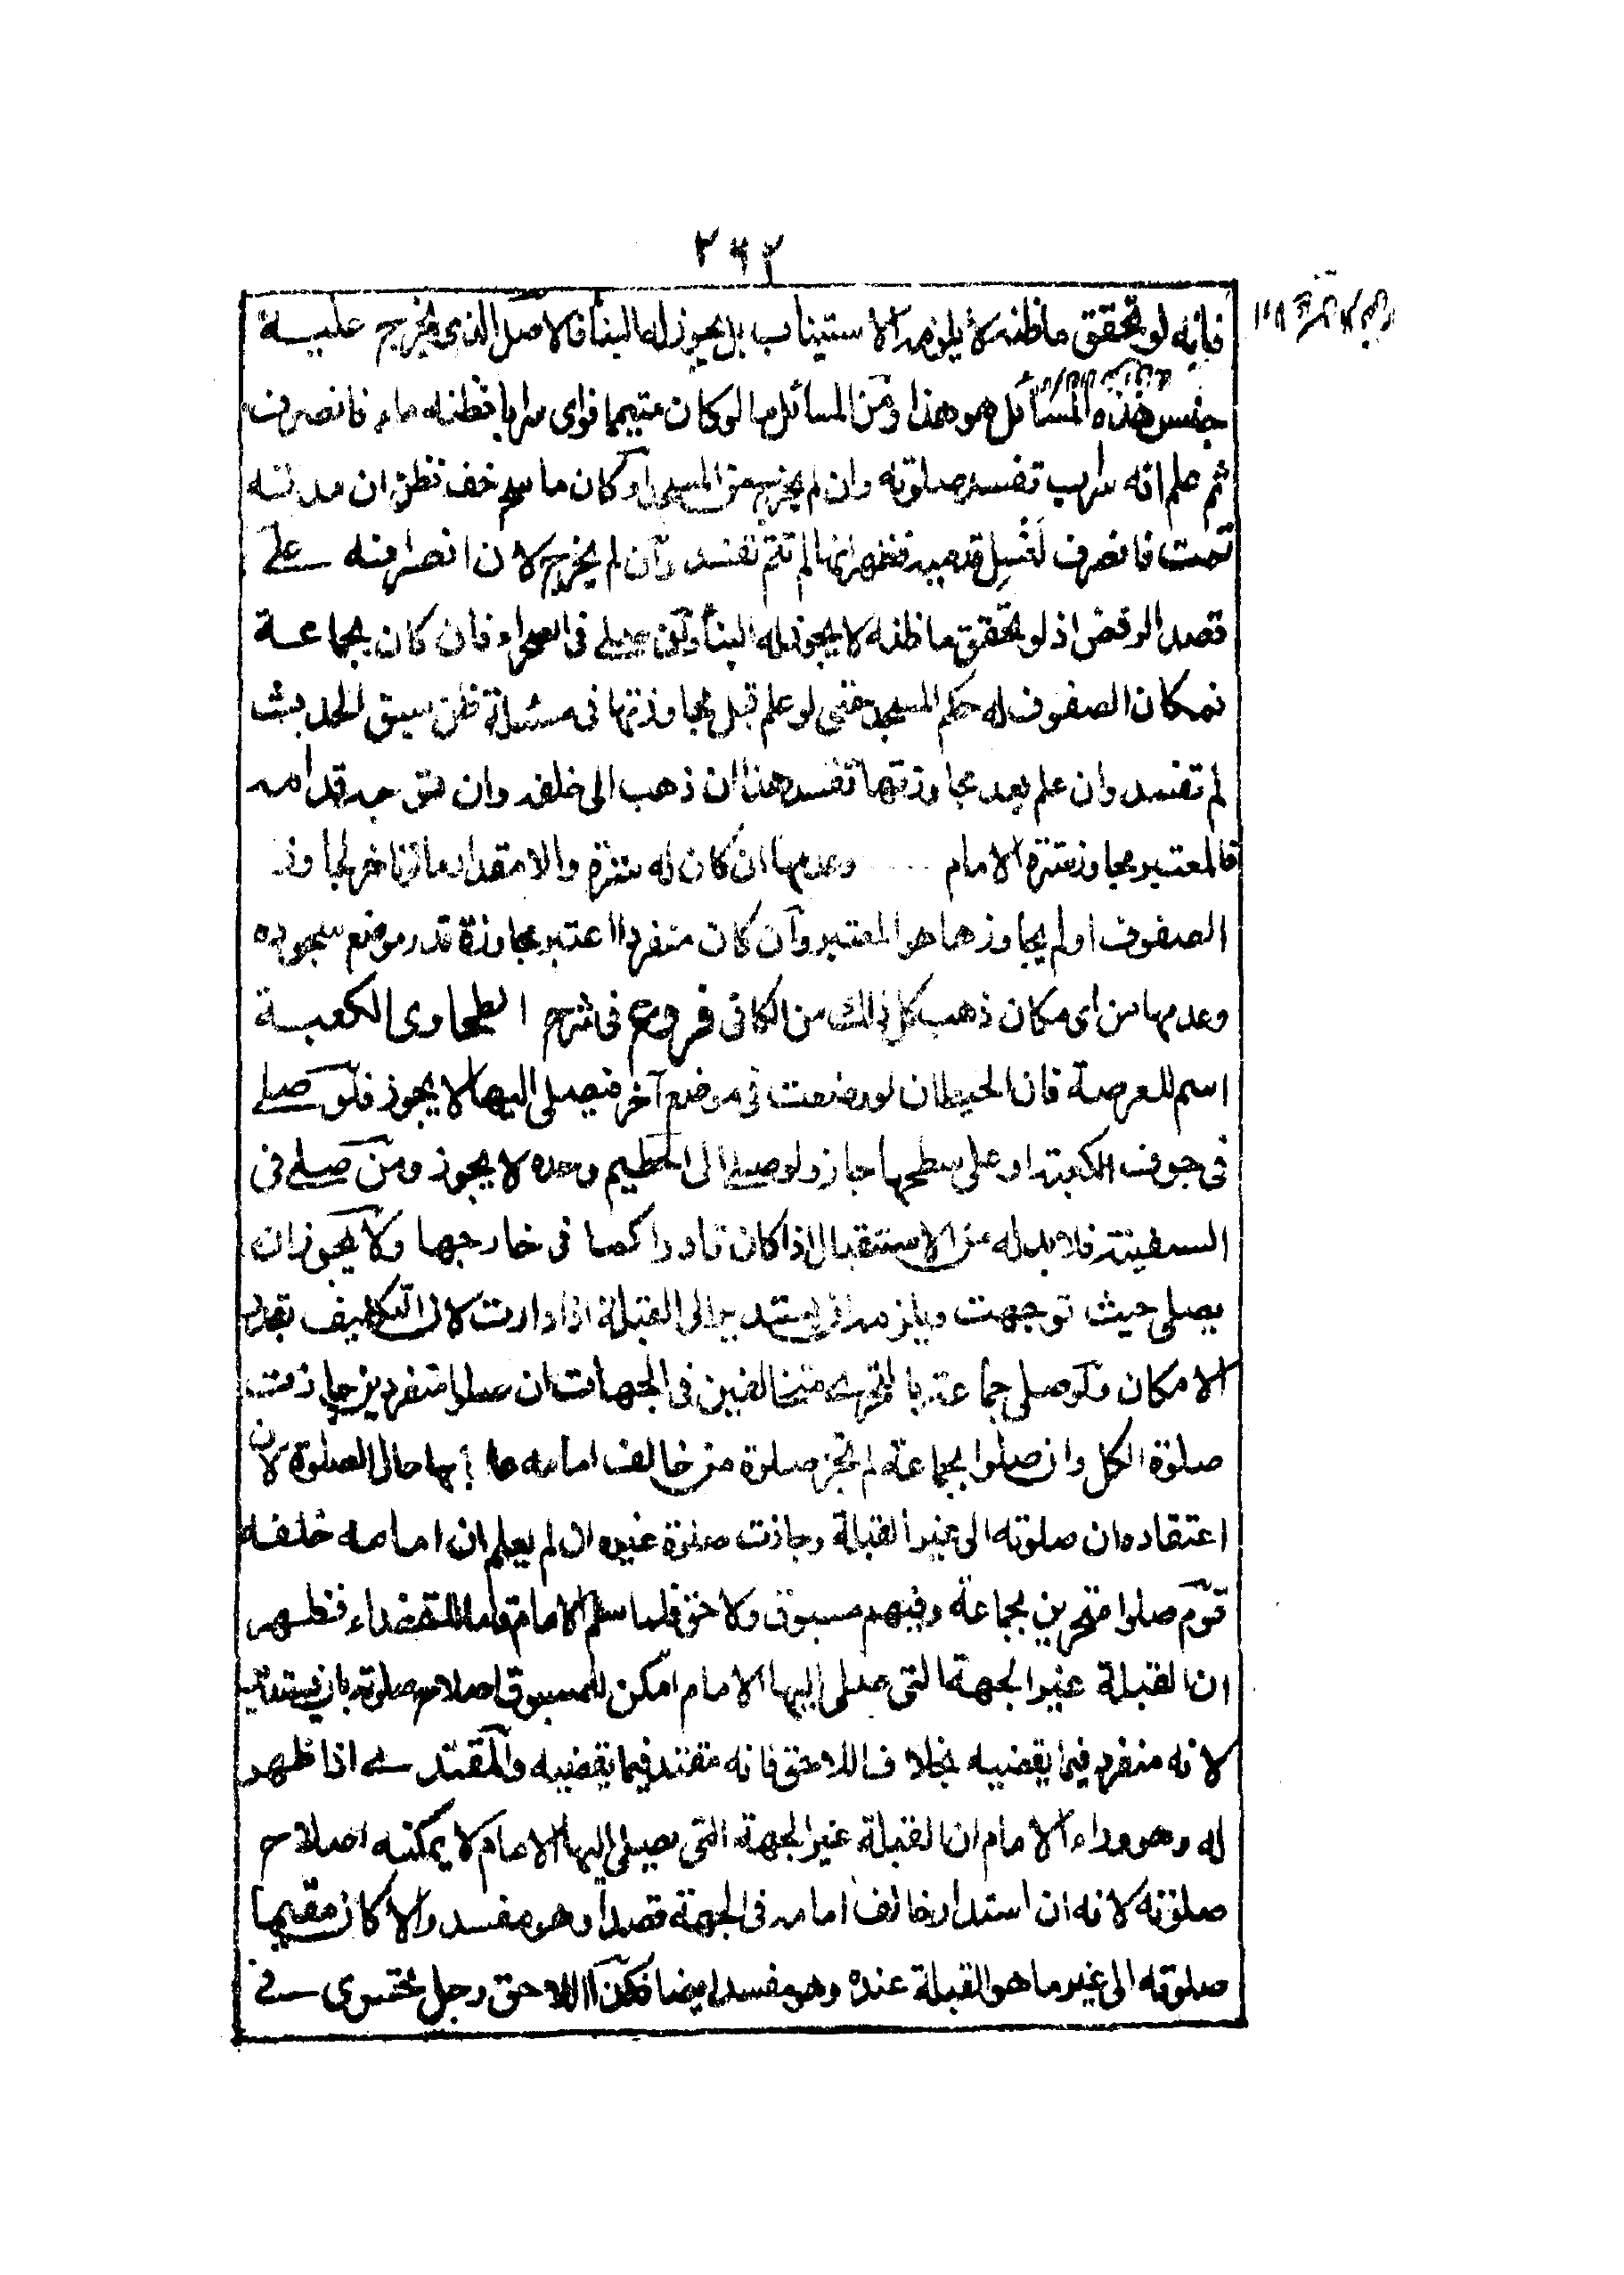 ٢٦٢
فانه لو تحقق ما ظنه لا يلزمه الاستيناب بل يجوز له البنأ فالاصل الذى يخرج عليه
جنس هذه المسائل هو هذا ومن المسائل ما لو كان متيمما فراى سرابا فظنه ماء فانصرف
ثم علم انه سراب تفسد صلوته وان لم يخرج من المسجد او كان ماسح خف فظن ان مدته
تمت فانصرف لغسل قدميه فظهر انها لم تتم تفسد وان لم يخرج لان انصرافه على
قصد الرفض اذ لو تحقق ما ظنه لا يجوز له البنأ ومن صلى فى الصحراء فان كان بجماعة
فمكان الصفوف له حكم المسجد حتى لو علم قبل مجاوزتها فى مسئلة ظن سبق الحدث
لم تفسد وان علم بعد مجاوزتها تفسد هذا ان ذهب الى خلفه وان توجه قدامه
فالمعتبر مجاوز سترة الامام وعدمها ان كان له سترة والا مقدار ما لو تاخر لجاوز
الصفوف اولم يجاوزها هو المعتبر وان كان منفردا اعتبر مجاوزة قدر موضع سجوده
وعدمها من اى مكان ذهب كل ذلك من الكافى فروع فى شرح الطحاوى الكعبة
اسم للعرصة فان الحيطان لو وضعت فى موضع آخر فيصلى اليها لا يجوز فلو صلى
فى جوف الكعبة او على سطحها جاز ولو صلى الى الحطيم وحده لا يجوز ومن صلى فى
السفينة فلا بد له من الاستقبال اذا كان قادرا كما فى خارجها ولا يجوز ان
يصلى حيث توجهت ويلزمه ان يستدير الى القبلة اذا دارت لان التكليف بقدر
الامكان ولو صلى جماعة بالتحرى متخالفين فى الجهات ان صلوا منفردين جازت
صلوة الكل وان صلوا بجماعة لم تجز صلوة من خالف امامه عالما بها حال الصلوة لان
اعتقاده ان صلوته الى غير القبلة وجازت صلوة غيره ان لم يعلم ان امامه خلفه
قوم صلوا متحرين بجماعة وفيهم مسبوق ولاحق فلما سلم الامام قاما للقضاء فظهر
ان القبلة غير الجهة التى صلى اليها الامام امكن للمسبوق اصلاح صلوته بان يستدير
لانه منفرد فيما يقضيه بخلاف اللاحق فانه مقتد فيما يقضيه والمقتدى اذا ظهر
له وهو وراء الامام ان القبلة غير الجهة التى يصلى اليها الامام لا يمكنه اصلاح
صلوته لانه ان استدار خالف امامه فى الجهة قصدا وهو مفسد والا كان مقيما
صلوته الى غير ما هو القبلة عنده وهو مفسد ايضا فكذا اللاحق رجل تحرى فى